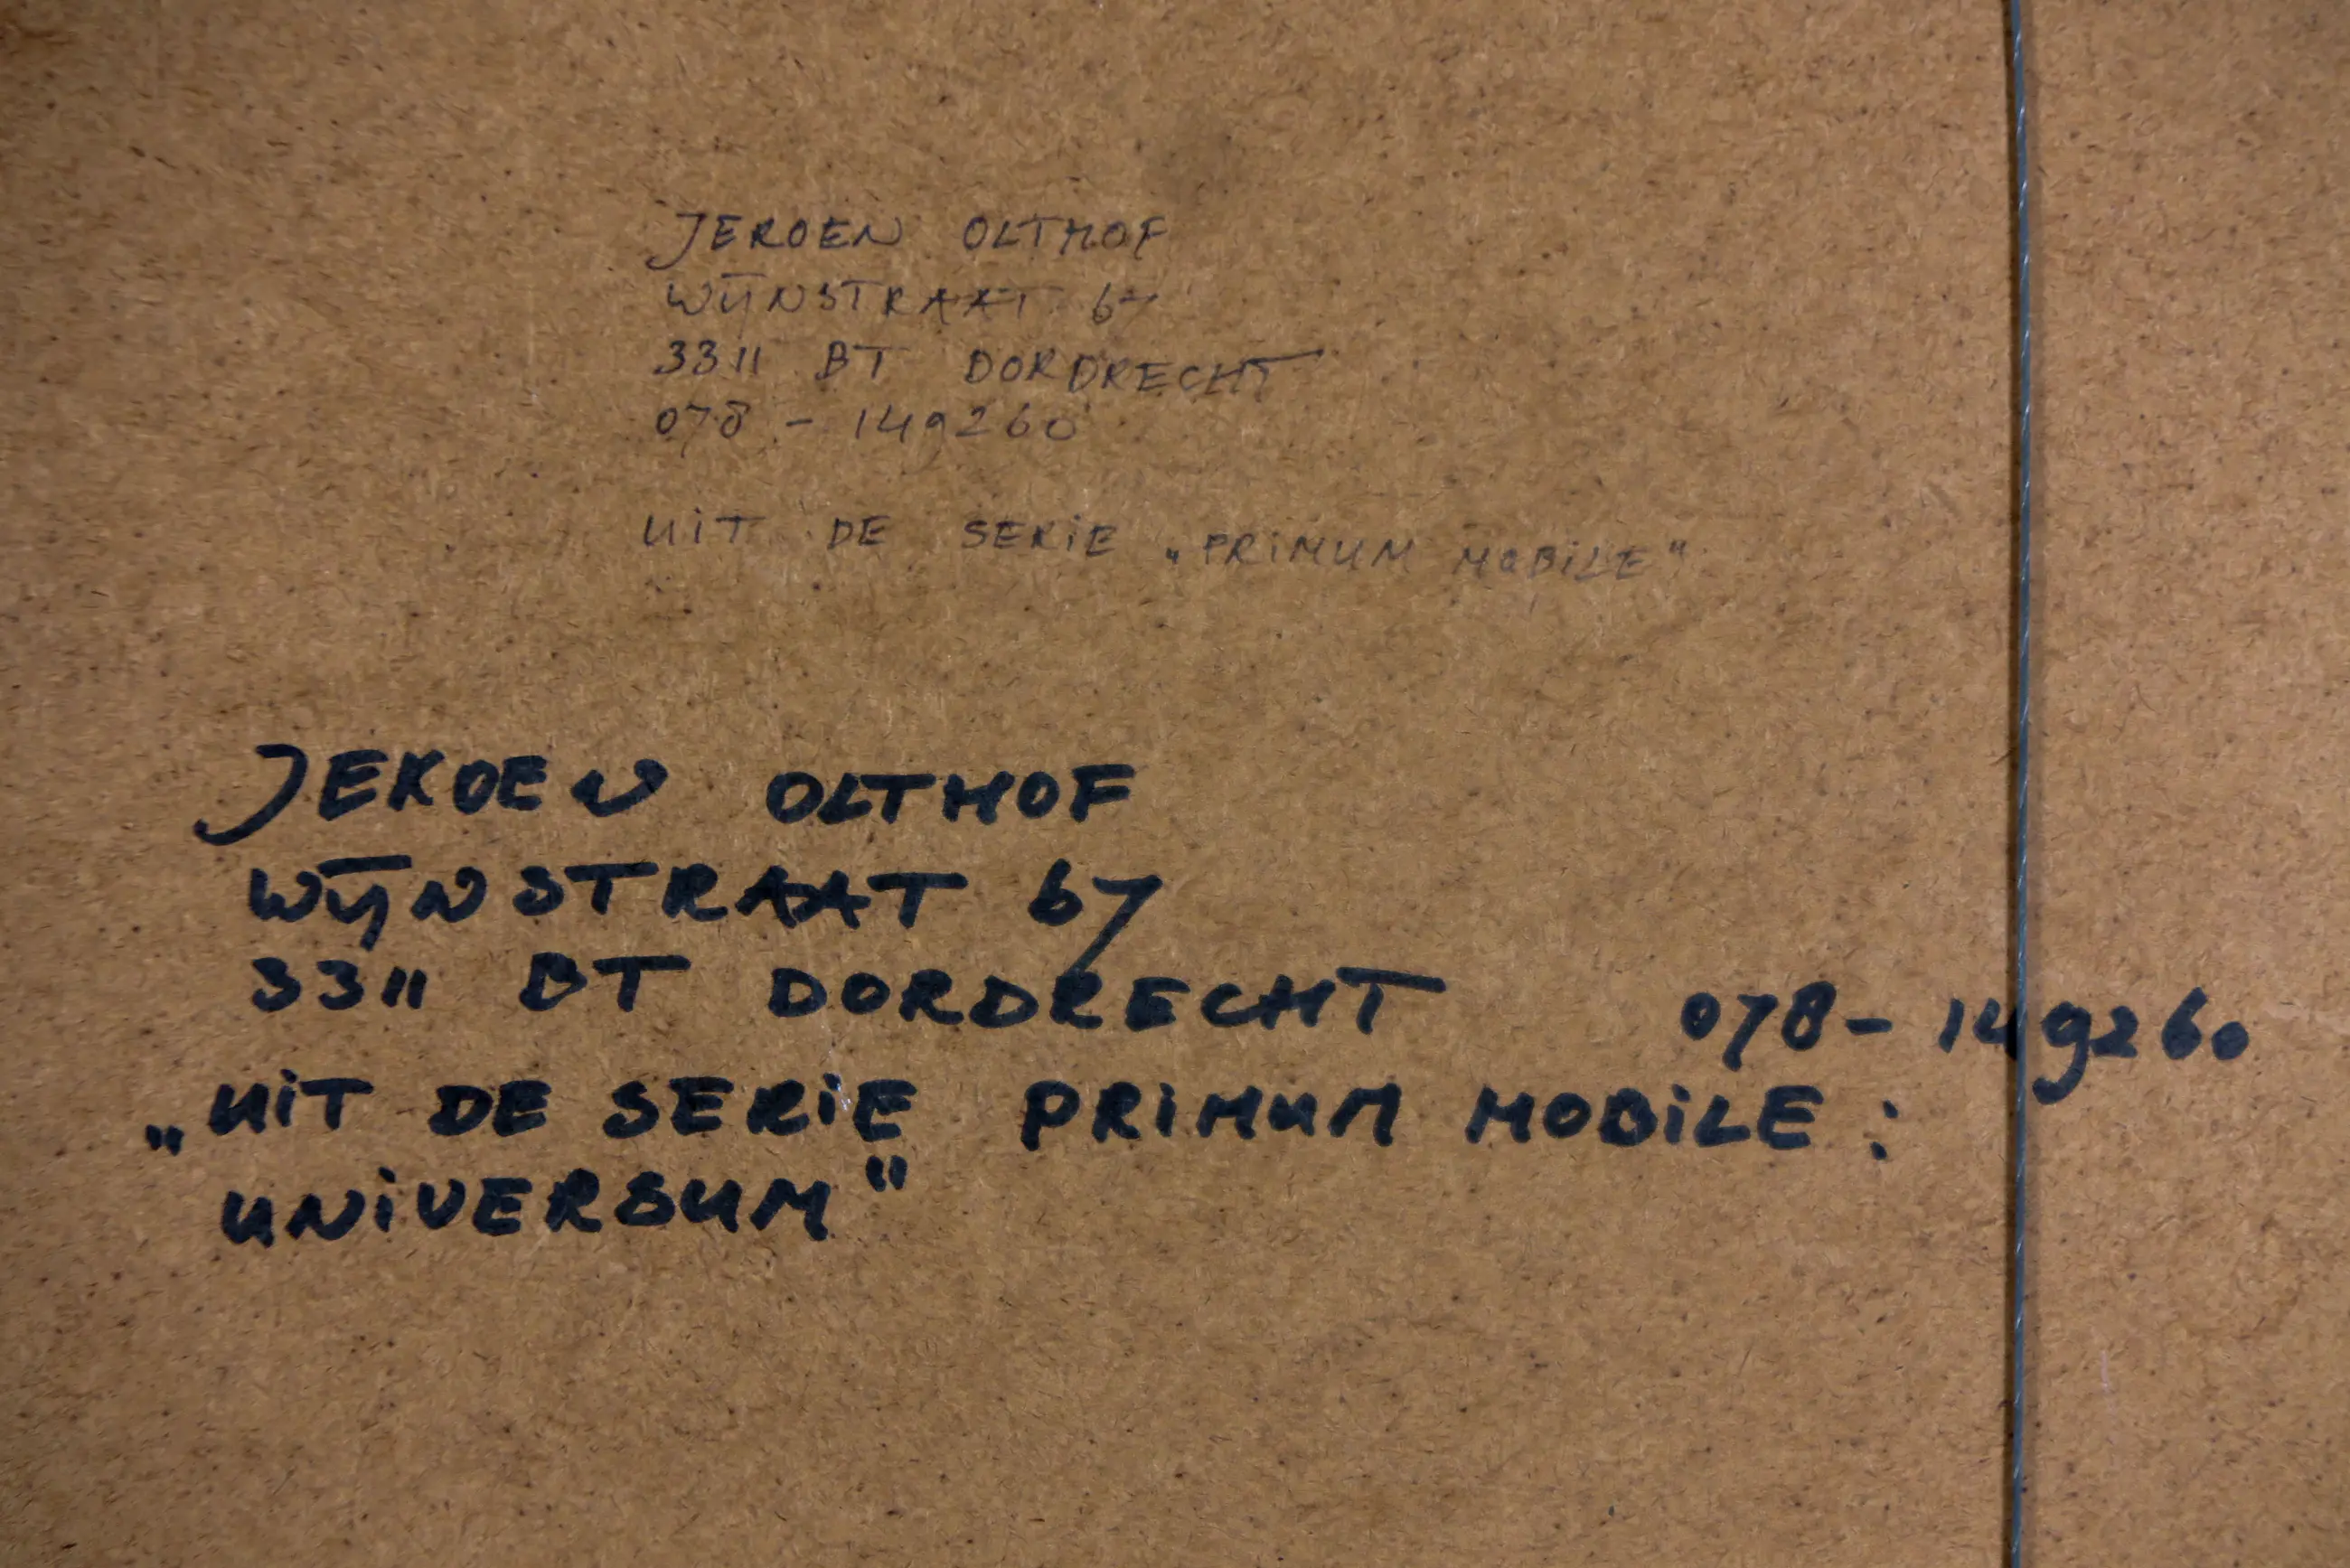 JEROEN OLTHOF
WIJNSTRAAT 67
3311 BT DORDRECHT
078 - 149260
UiT DE SERiE „PRiMUM MOBiLE"
JEROEN OLTHOF
WIJNSTRAAT 67
3311 BT DORDRECHT 078 - 149260
„UiT DE SERiE PRiMUM MOBiLE :
UNiVERSUM"